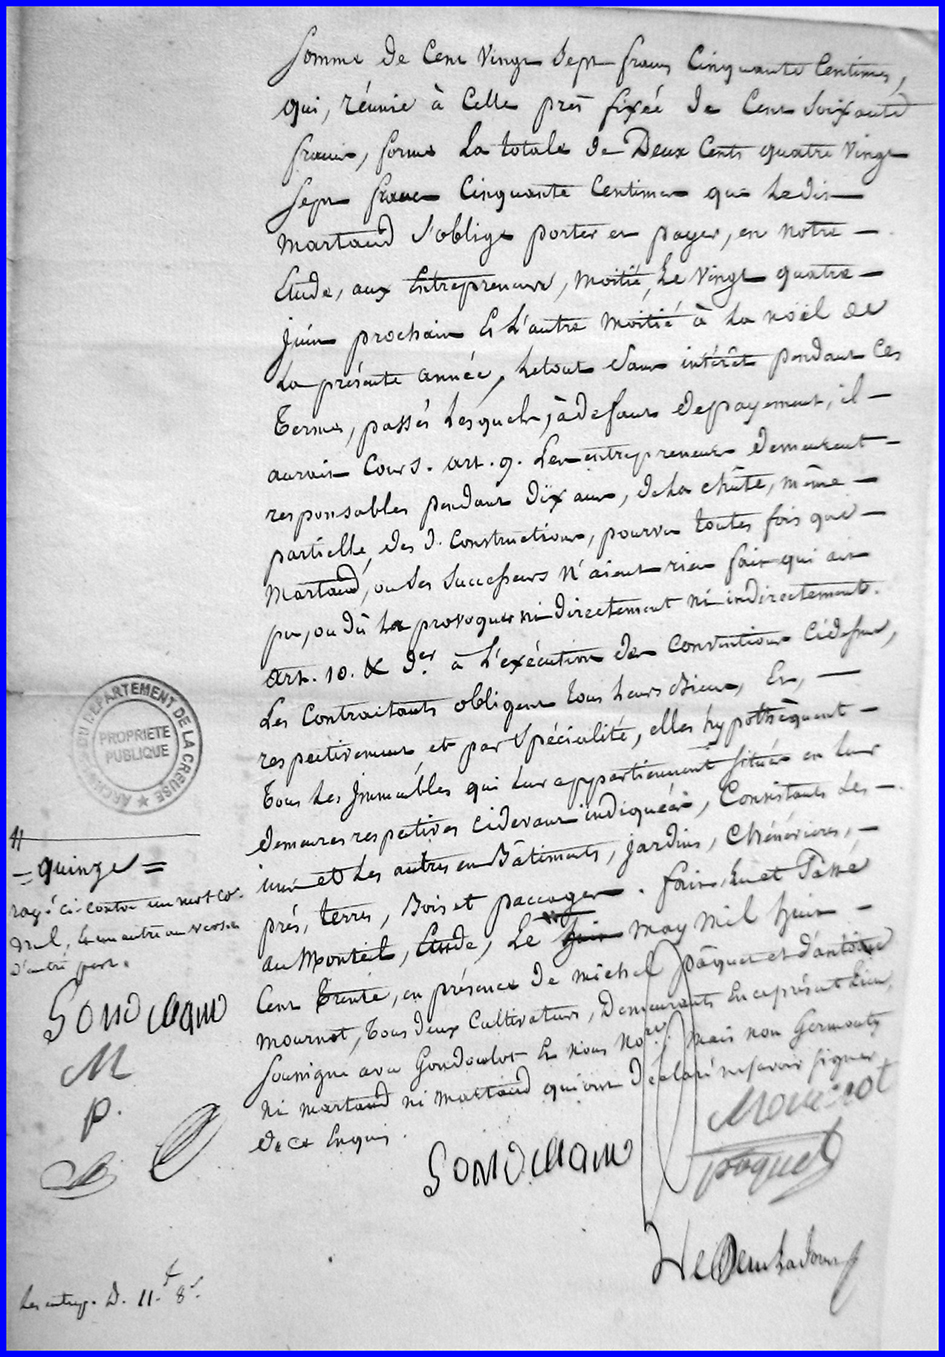 Somme de Cent Vingt Sept francs Cinquante Centimes,
qui, réunie à Celle prés fixée de Cent Soixante
francs, forme La totale de Deux Cents quatre Vingt
Sept francs Cinquante Centimes que Ledit
Martaud S'oblige porter et payer, en notre
Etude, aux Entrepreneurs, moitié, Le Vingt quatre
Juin prochain Et L'autre moitié à La noël de
La présente année, Letout Sans intérêt pendant Ces
Termes, passés Lesquels, à defaut depayement, il
aurait Cours. art. 9. Les entrepreneurs demeurent
responsables pendant dix ans, deLa chûte, même
partielle, des d. constructions, pourvu toutes fois que
Martaud, ou Ses Successeurs n'aient rien fait qui ait
pu, ou dû La provoquer ni directement ni indirectement.
art. 10. & der à L'exécution des Conventions Cidessus,
Les Contractants obligent tous Leurs Biens, Et,
respectivement, et par Spécialité, elles hypothèquent
Tous Les Immeubles qui Leur appartiennent Situés en Leur
demeures respectives cidevant indiquées, Consistants Les
uns et Les autres en Bâtiments, jardins, Chénevières,
prés, terres, Bois et paccages. fait, Lu et Passé
au Monteil, Etude, Le may Mil huit
Cent Trente, en présence de michel Pâquet et d'antoine
Mournot, Tous deux Cultivateurs, Demeurants En ceprésent Lieu,
Soussigné avec Et Nous Nore. Mais non
ni martaud ni qui ont déclaré nesavoir Signer
De ce Enquis.
ARCHIVES DU DEPARTEMENT DE LA CREUSE
PROPRIETE
PUBLIQUE
= quinze =
rayé ci-contre un mot
nul, Et un autre au verso
D'autre part.
M
P.
Mournot
paquet
Les entrep. D. 11 f 8 s.